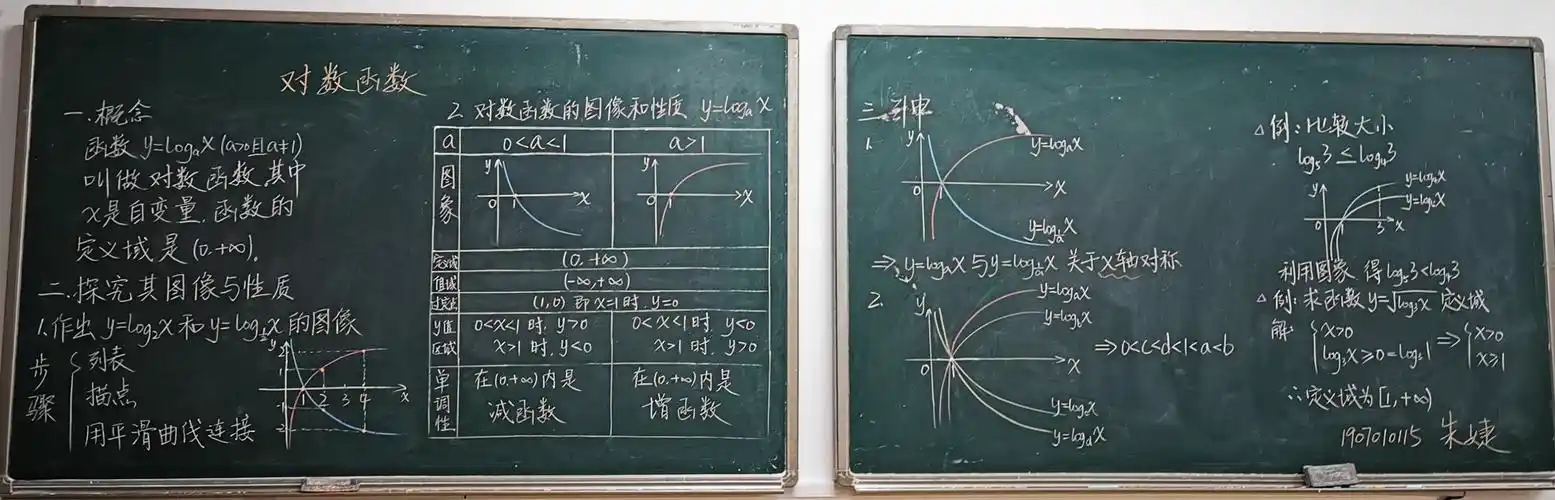 对数函数
一.概念
函数 y=logₐx (a>0且a≠1)
叫做对数函数,其中
x是自变量,函数的
定义域是(0,+∞)。
二.探究其图像与性质
1.作出 y=log₂x 和 y=log½x 的图像
步骤
列表
描点
用平滑曲线连接
y
2
1
-1
-2
1 2 3 4 x
2.对数函数的图像和性质 y=logₐx
a 0<a<1 a>1
图象
y 0 1 x
y 0 1 x
定义域 (0,+∞)
值域 (-∞,+∞)
过定点 (1,0) 即x=1时,y=0
y值区域
0<x<1时,y>0 0<x<1时,y<0
x>1时,y<0 x>1时,y>0
单调性
在(0,+∞)内是 在(0,+∞)内是
减函数 增函数
三.引申
1.
y
y=logₐx
0 1 x
y=log_{1/a}x
⇒y=logₐx与y=log_{1/a}x 关于x轴对称
2.
y
y=logₐx
y=log_b x
0 1 x
⇒0<c<d<1<a<b
y=log_c x
y=log_d x
△例:比较大小
log₅3 ≤ log₄3
y
y=log₄x
0 1 3 x
利用图象 得log₅3<log₄3
△例:求函数 y=√log₃x 定义域
解:
x>0
log₃x≥0=log₃1
⇒
x>0
x≥1
∴定义域为[1,+∞)
1907010115 朱婕